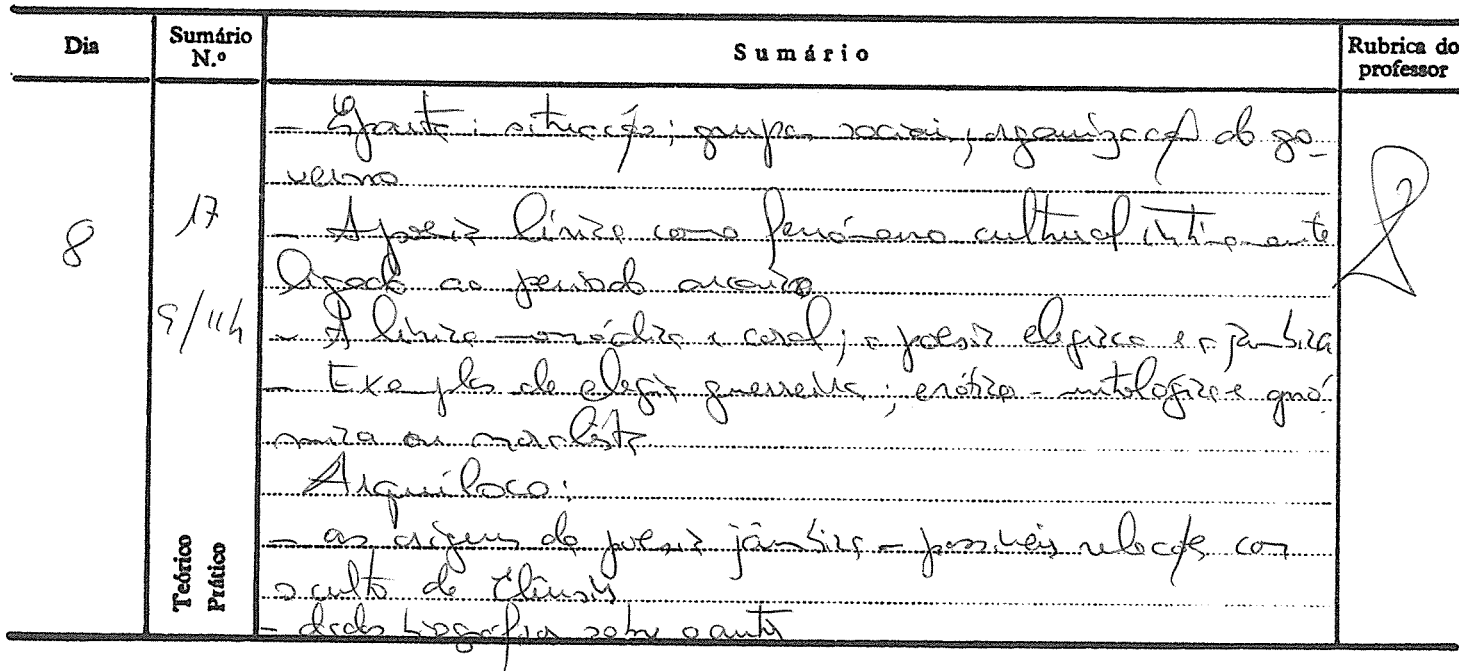 Dia
Sumário N.º
Sumário
Rubrica do professor
8
17
9/11h
Teórico
Prático
- Esparta: situação; grupos sociais; organização do go-
verno
- A poesia lírica como fenómeno cultural intimamente
ligado ao período arcaico
- A lírica monódica e coral; a poesia elegíaca e a jâmbica
- Exemplos de elegia guerreira; erótica-mitológica e gnó-
mica ou moralista
Arquíloco:
- as origens da poesia jâmbica - possíveis relações com
o culto de Elêusis
- dados biográficos sobre o autor